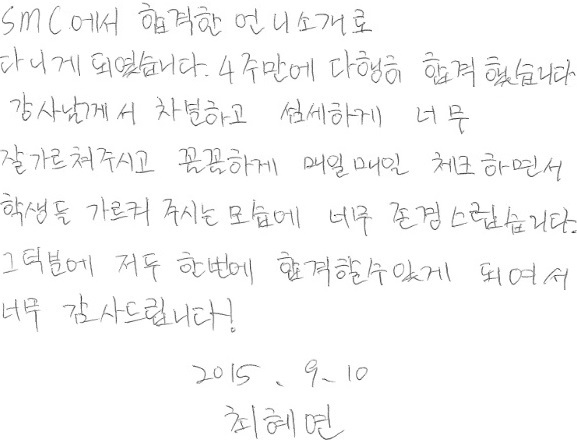 SMC에서 합격한 언니소개로
다니게 되였습니다. 4주만에 다행히 합격했습니다.
강사님께서 차분하고 섬세하게 너무
잘가르쳐주시고 꼼꼼하게 매일매일 체크하면서
학생들 가르켜 주시는 모습에 너무 존경스럽습니다.
그덕분에 저두 한번에 합격할수있게 되여서
너무 감사드립니다!
2015. 9. 10
최혜연